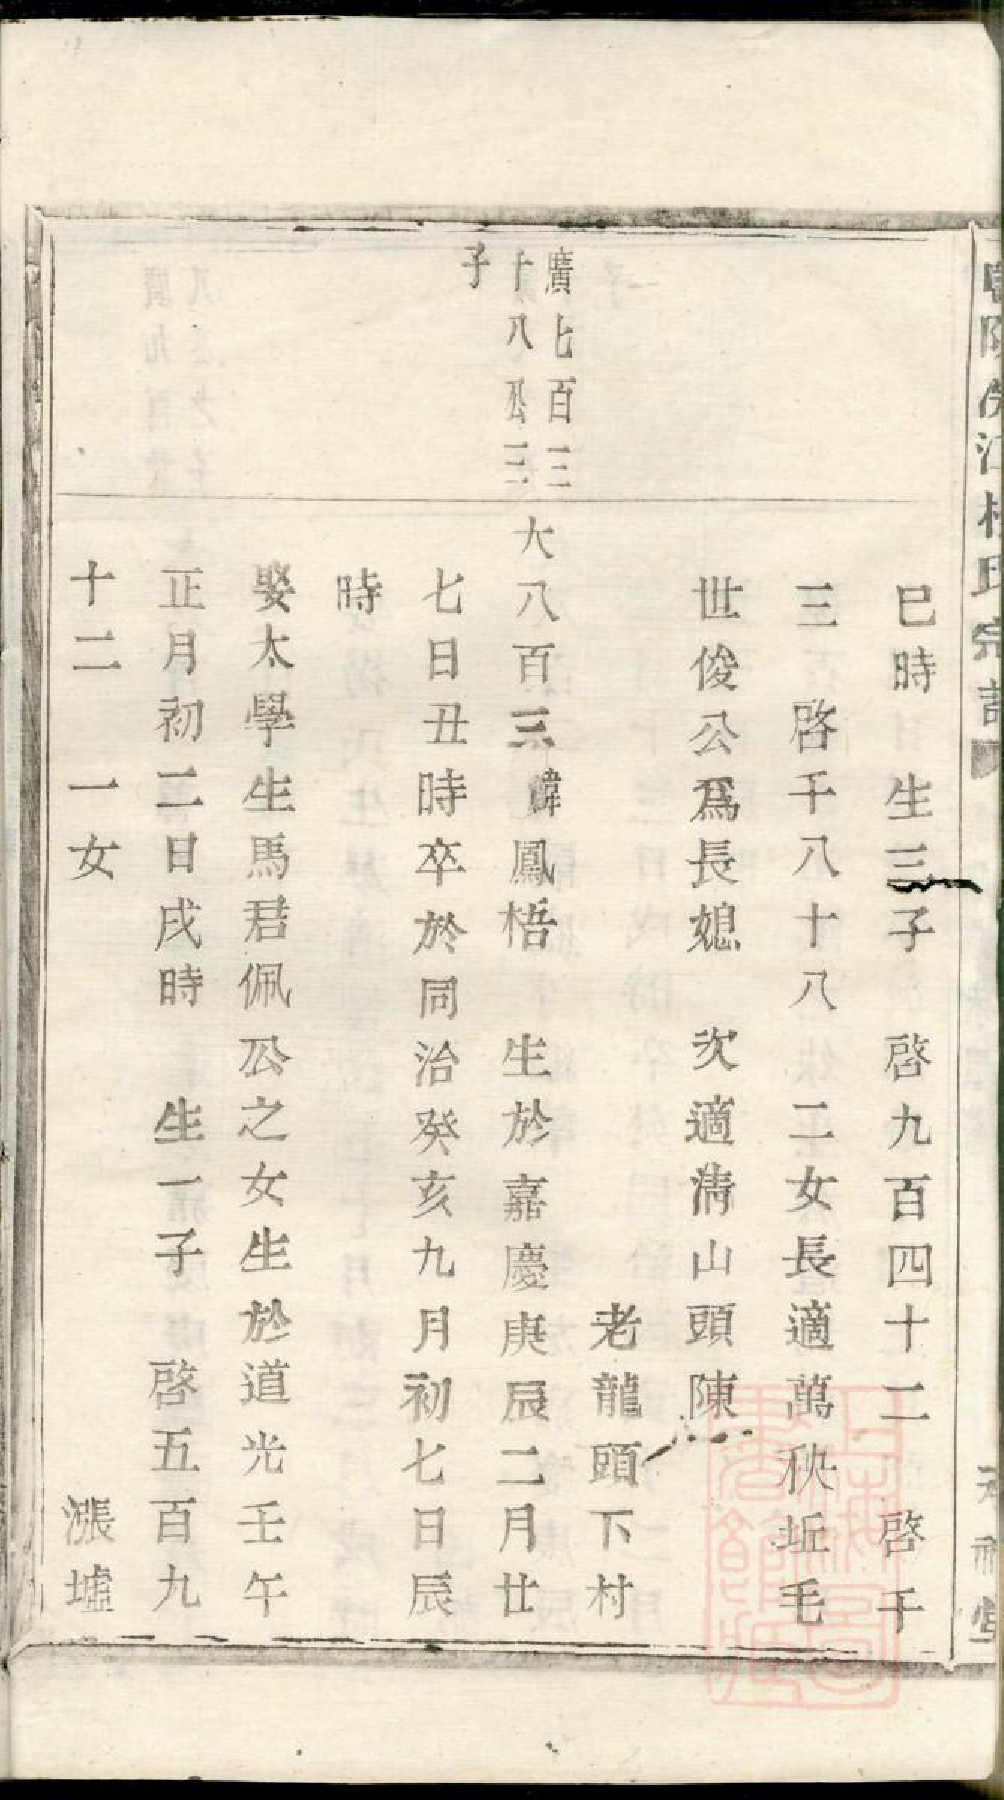 氏宗譜
巳時 生三子 啓九百四十二 啓千
三 啓千八十八 二女長適萬秧坵毛
世俊公爲長媳 次適淸山頭陳
老龍頭下村
廣七百三
十八公三
子
大八百三 諱鳳梧 生於嘉慶庚辰二月廿
七日丑時卒於同治癸亥九月初七日辰
時
娶太學生馬君佩公之女生於道光壬午
正月初二日戌時 生一子 啓五百九
十二 一女 漲墟